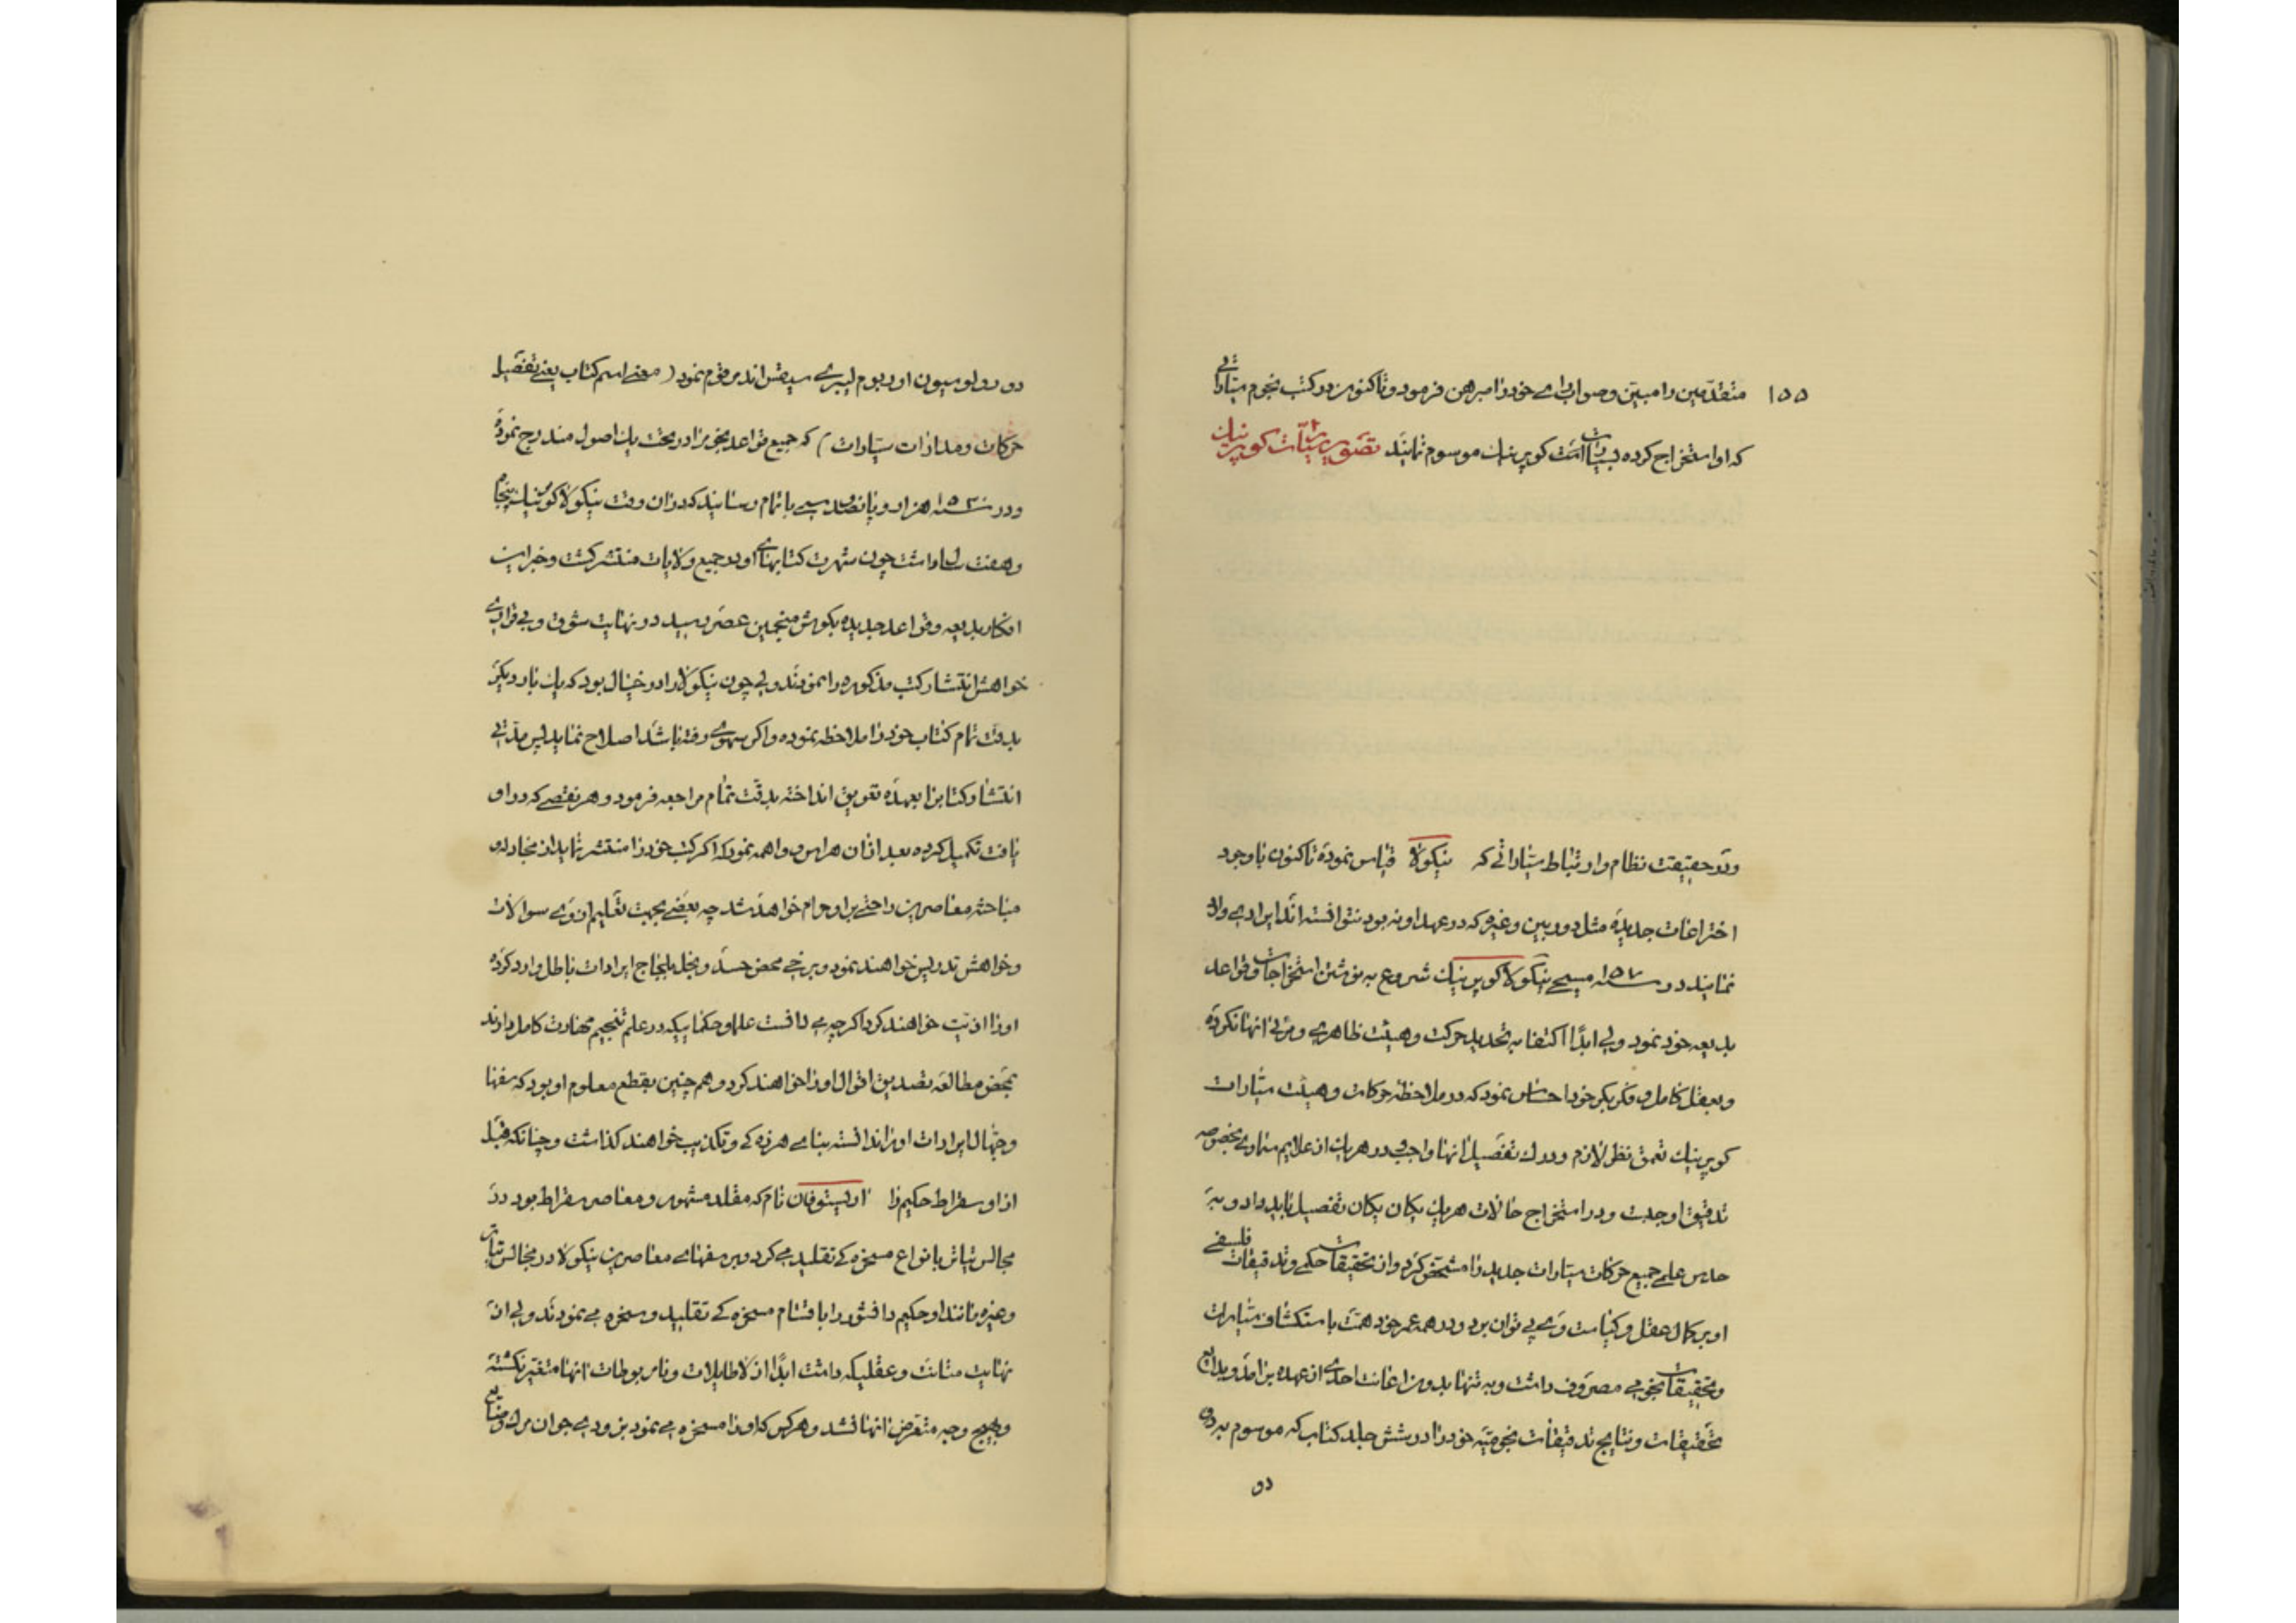 ۱۵۵
متقدمین را مبین و صواب رای خود را مبرهن فرمود و تا کنون در کتب نجوم سیاراتی
که او استخراج کرده بسیارات کوپرنیک موسوم نمایند تصویر سیارات کوپرنیک
و در حقیقت نظام و ارتباط سیاراتی که نیکولا قیاس نموده تا کنون با وجود
اختراعات جدیده مثل دوربین و غیره که در عهد او نه بود نتوانسته اند ایرادی وارد
نمایند در سنه ۱۵۰۷ مسیحی نیکولا کوپرنیک شروع به نوشتن استخراجات و قواعد
بدیعه خود نمود ولی ابدا اکتفا به تحدید حرکت و هیئت ظاهری و مرئی انها نکرده
و بعقل کامل و فکر بکر خود احساس نمود که در ملاحظه حرکات و هیئت سیارات
کوپرنیک تعمق نظر لازم و درک تفصیل انها واجب و در هر یک از علایم سماوی مخصوصه
تدقیق او جدت و در استخراج حالات هر یک یکان یکان تفصیل باید داد و به
حدس علمی جمیع حرکات سیارات جدید را مشخص کرد و از تحقیقات حکمی و تدقیقات فلسفی
او بر کمال عقل و کیاست وی پی توان برد و در همه عمر خود همت باستکشاف سیارات
و تحقیقات نجومی مصروف داشت و به تنهایی بدون اعانت احدی از عهده برامد و بدایع
تحقیقات و نتایج تدقیقات نجومیه خود را در شش جلد کتاب که موسوم به دو
دو
دو رولوسیون اوربوم لیبری سیقس اند مرقوم نمود (معنی اسم کتاب یعنی تفصیل
حرکات و مدارات سیارات) که جمیع قواعد نجوم را در تحت یک اصول مندرج نموده
و در سنه ۱۵۳۰ هزار و پانصد و سی باتمام رسانید که در ان وقت نیکولا کوپرنیک پنجاه
و هفت سال داشت چون شهرت کتابهای او در جمیع ولایات منتشر گشت و خبر این
افکار بدیعه و قواعد جدیده بگوش منجمین عصر رسید در نهایت شوق و بی قراری
خواهش انتشار کتب مذکوره را نمودند ولی چون نیکولا را در خیال بود که یک بار دیگر
بدقت تمام کتاب خود را ملاحظه نموده و اگر سهوی رفته باشد اصلاح نماید پس مدتی
انتشار کتاب را بعهده تعویق انداخته بدقت تمام مراجعه فرمود و هر نقصی که در او
یافت تکمیل کرده بعد از ان هراس و واهمه نمود که اگر کتب خود را منتشر نماید از مجادله و
مباحثه معاصرین راحتی بر او حرام خواهد شد چه بعضی بجهت تعلیم از وی سوالات
و خواهش تدریس خواهند نمود و برخی محض حسد و بخل بلجاج ایرادات باطل وارد کرده
او را اذیت خواهند کرد اگر چه می دانست علما و حکمائیکه در علم تنجیم مهارت کامل دارند
بمحض مطالعه تصدیق اقوال او را خواهند کرد و هم چنین بقطع معلوم او بود که سفها
و جهال ایرادات او را ندانسته بنای هرزه گی و تکذیب خواهند گذاشت و چنانکه قبل
از او سقراط حکیم را اریستوفان نام که مقلد مشهور و معاصر سقراط بود در
مجالس تیاتر بانواع مسخره گی تقلید می کرد و سفهای معاصرین نیکولا در مجالس تیاتر
و غیره مانند او حکیم دانشور را باقسام مسخره گی تقلید و سخره می نمودند ولی از
نهایت متانت و عقلیکه داشت ابدا از لاطایلات و نامربوطات انها متغیر نگشته
و بهیچ وجه متعرض انها نشد و هر کس که او را مسخره می نمود بزودی جوان مرگ و ضایع